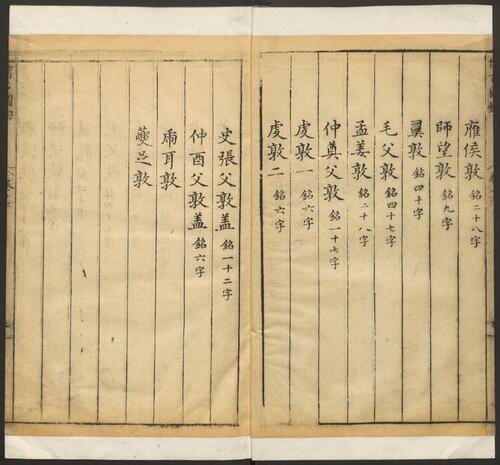 雁侯敦 銘二十八字
師望敦 銘九字
翼敦 銘四十字
毛父敦 銘四十七字
孟姜敦 銘二十八字
仲奠父敦 銘一十七字
虔敦一 銘六字
虔敦二 銘六字
史張父敦蓋 銘一十二字
仲酉父敦蓋 銘六字
虎耳敦
夔足敦